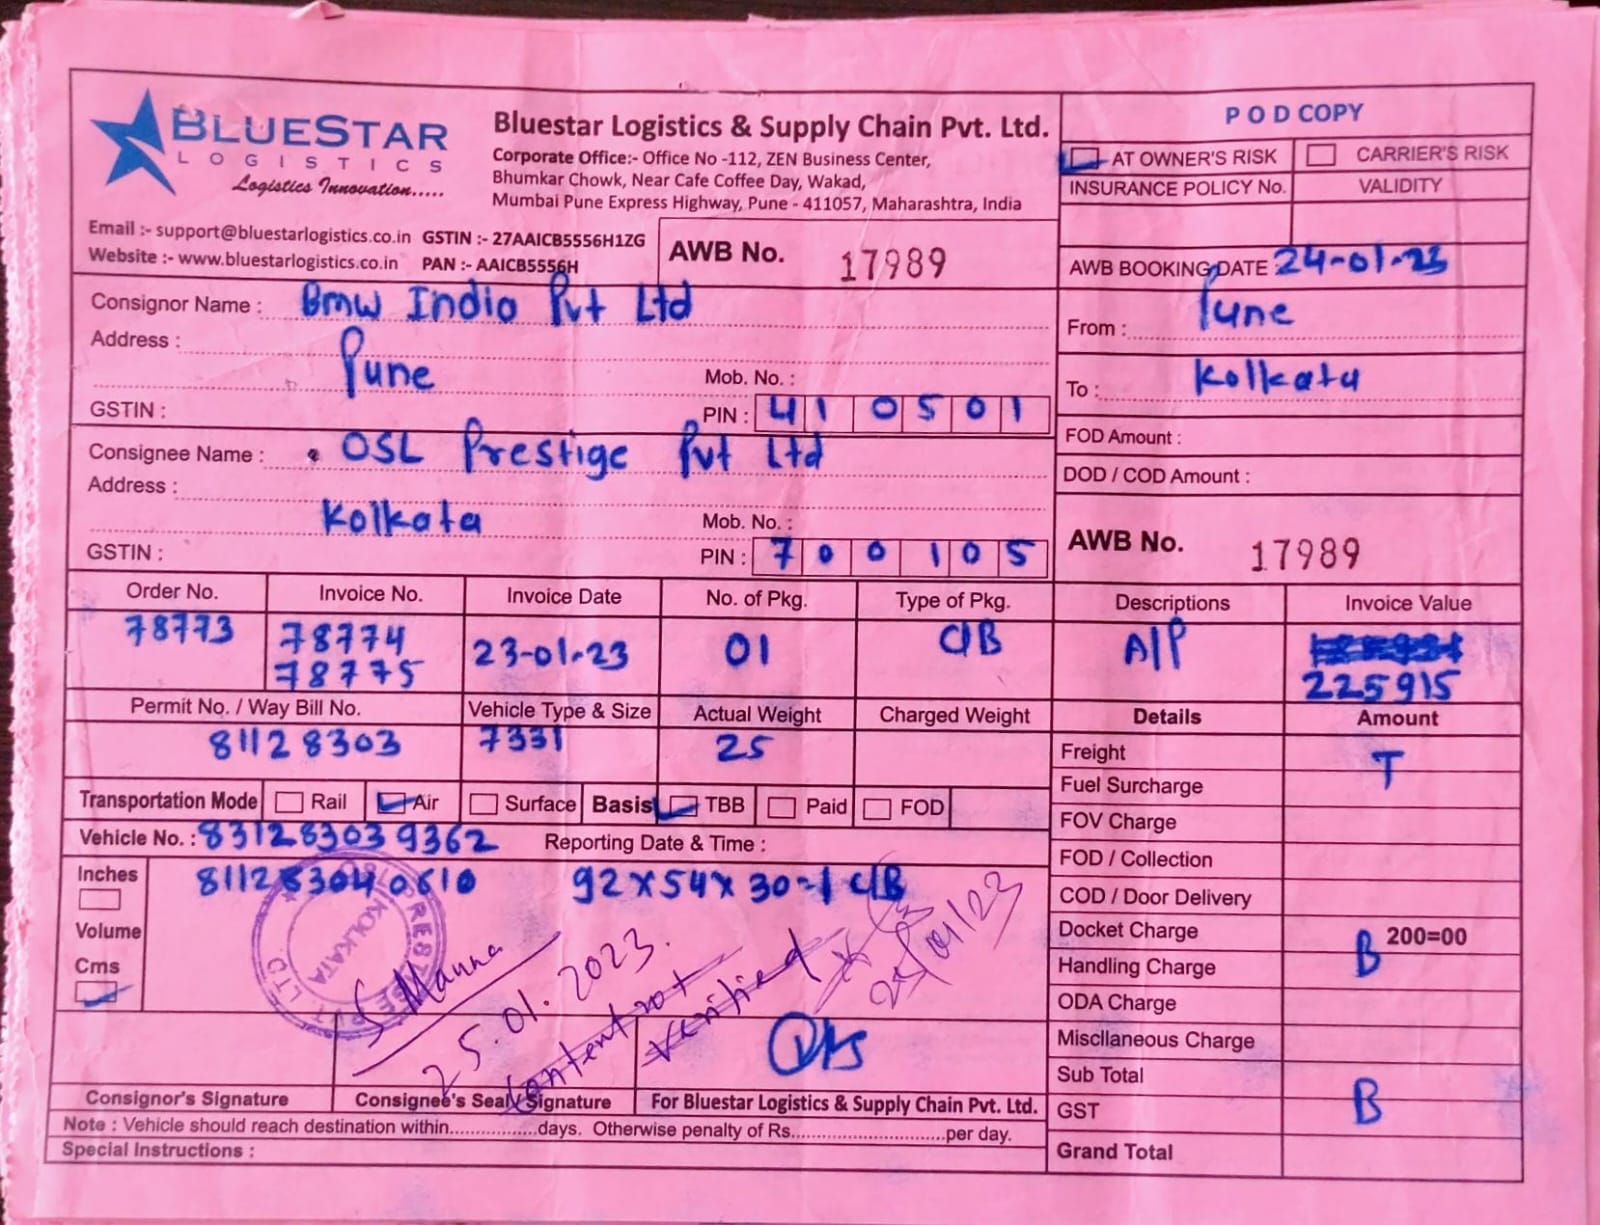 BLUESTAR
LOGISTICS
Logistics Innovation.....
Bluestar Logistics & Supply Chain Pvt. Ltd.
Corporate Office:- Office No -112, ZEN Business Center,
Bhumkar Chowk, Near Cafe Coffee Day, Wakad,
Mumbai Pune Express Highway, Pune - 411057, Maharashtra, India
Email :- support@bluestarlogistics.co.in GSTIN :- 27AAICB5556H1ZG
Website :- www.bluestarlogistics.co.in PAN :- AAICB5556H
AWB No. 17989
POD COPY
AT OWNER'S RISK CARRIER'S RISK
INSURANCE POLICY No. VALIDITY
AWB BOOKING DATE 24-01-23
From : Pune
To : Kolkata
FOD Amount :
DOD / COD Amount :
AWB No. 17989
Consignor Name : Bmw India Pvt Ltd
Address :
Pune Mob. No. :
GSTIN : PIN : 410501
Consignee Name : OSL Prestige Pvt Ltd
Address :
Kolkata Mob. No. :
GSTIN : PIN : 700105
Order No. Invoice No. Invoice Date No. of Pkg. Type of Pkg. Descriptions Invoice Value
78773 78774 23-01-23 01 C/B A/P
78775 225915
Permit No. / Way Bill No. Vehicle Type & Size Actual Weight Charged Weight Details Amount
81128303 7331 25
Transportation Mode Rail Air Surface Basis TBB Paid FOD
Vehicle No. : 831283039362 Reporting Date & Time :
Inches 811283040610 92x54x30-1 C/B
Volume
Cms
Freight T
Fuel Surcharge
FOV Charge
FOD / Collection
COD / Door Delivery
Docket Charge 200=00
Handling Charge B
ODA Charge
Miscllaneous Charge
Sub Total
GST B
Grand Total
KOLKATA
S Manna
25.01.2023.
Content not
verified
25/01/23
Consignor's Signature Consignee's Seal / Signature For Bluestar Logistics & Supply Chain Pvt. Ltd.
Note : Vehicle should reach destination within.................days. Otherwise penalty of Rs.............................per day.
Special Instructions :